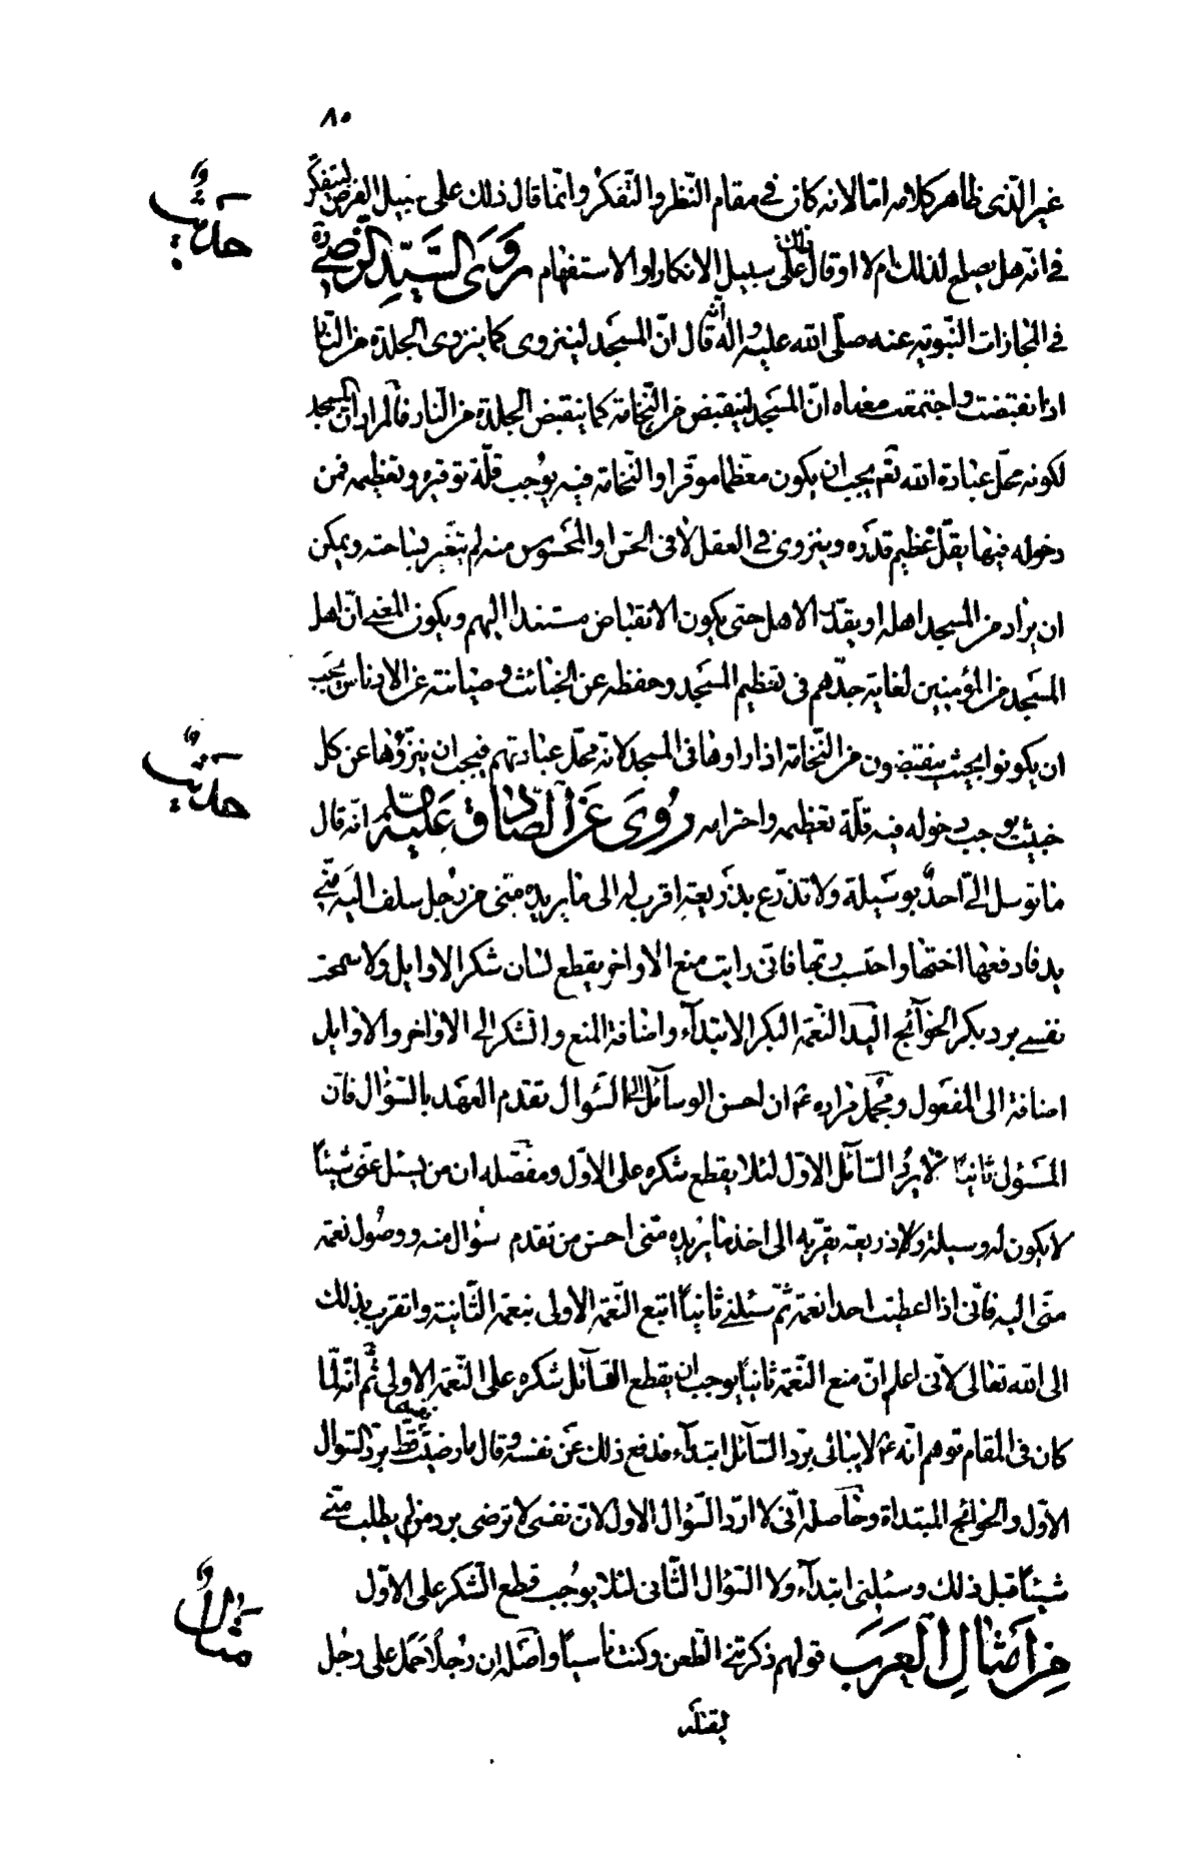 ٨٠
غير الّذى ظاهر كلامه امّا لانه كان فى مقام النّظر والتّفكر وانّما قال ذلك على سبيل الفرض ليتفكّر
فى انّه هل يصلح لذلك ام لا او قال ذلك على سبيل الانكار او الاستفهام روى السّيّد الرّضىّ ره
فى المجازات النّبويّه عنه صلّى الله عليه واله انّه قال انّ المسجد لينزوى كما ينزوى الجلدة من النّار
اذا انقبضت واجتمعت معناه انّ المسجد لينقبض من النّخامة كما ينقبض الجلدة من النّار فالمراد انّ المسجد
لكونه محلّ عبادة الله تعم يجب ان يكون معظّما موقّرا والنّخامة فيه يوجب قلّة توقيره وتعظيمه فمن
دخوله فيها يقلّ عظيم قدره وينزوى فى العقل لا فى الحسّ او المحسوس منه لم يتغيّر بساحته ويمكن
ان يراد من المسجد اهله او يقدّر الاهل حتى يكون الانقباض مستندا اليهم ويكون المعنى انّ اهل
المسجد من المؤمنين لغاية جدّهم فى تعظيم المسجد وحفظه عن الخبائث وصيانته عن الادناس يجب
ان يكونوا بحيث ينقبضون من النّخامة اذا راوها فى المسجد لانّه محلّ عبادتهم فيجب ان ينزّهوها عن كل
خبيث يوجب دخوله فيه قلّة تعظيمه واحترامه روى عن الصّادق عليه السلم انّه قال
ما توسل الىّ احدٌ بوسيلة ولا تذرّع بذريعةٍ اقرب له الى ما يريده منّى من رجل سلف اليه منّى
يد فاد فعها اختها واحتسب ربّها فانّى رايت منع الاواخر يقطع لسان شكر الاوايل ولا سمحت
نفسى برد بكر الحوآئج اليد النّعمة البكر الابتدآء واضافة المنع والشكر الى الاواخر والاوايل
اضافة الى المفعول ومجمل مراده عم ان احسن الوسآئل الى السّؤال تقدم العهد بالسّؤال فانّ
المسؤل ثانيًا لا يردّ السّآئل الاوّل لئلا يقطع شكره على الاوّل ومفصّله ان من يسئل عنّى شيئًا
لا يكون له وسيلة ولا ذريعة يقرّبه الى اخذ ما يريده منّى احسن من تقدم سؤال منه ووصول نعمة
منّى اليه فانّى اذا اعطيت احدا نعمة ثمّ سئلنى ثانيًا اتبع النّعمة الاولى بنعمة الثّانية واتقرب بذلك
الى الله تعالى لانّى اعلم انّ منع النّعمة ثانيًا يوجب ان يقطع السّآئل شكره على النّعمة الاولى ثمّ انّه لمّا
كان فى المقام توهم انّه عم لا يبالى بردّ السّآئل ابتدآء فدفع ذلك عن نفسه وقال ما رضيت نفسى قطّ بردّ السّؤال
الاوّل والحوائج المبتداة وحاصله انّى لا اردّ السّؤال الاول لانّ نفسى لا ترضى برد من لم يطلب منّى
شيئًا قبل ذلك وسئلنى ابتدآء ولا السّؤال الثّانى لئلا يوجب قطع الشّكر على الاوّل
من امثال العرب قولهم ذكرتنى الطّعن وكنت ناسيًا واصله ان رجلًا حمل على رجل
ليقتله
حديث
حديث
مثال